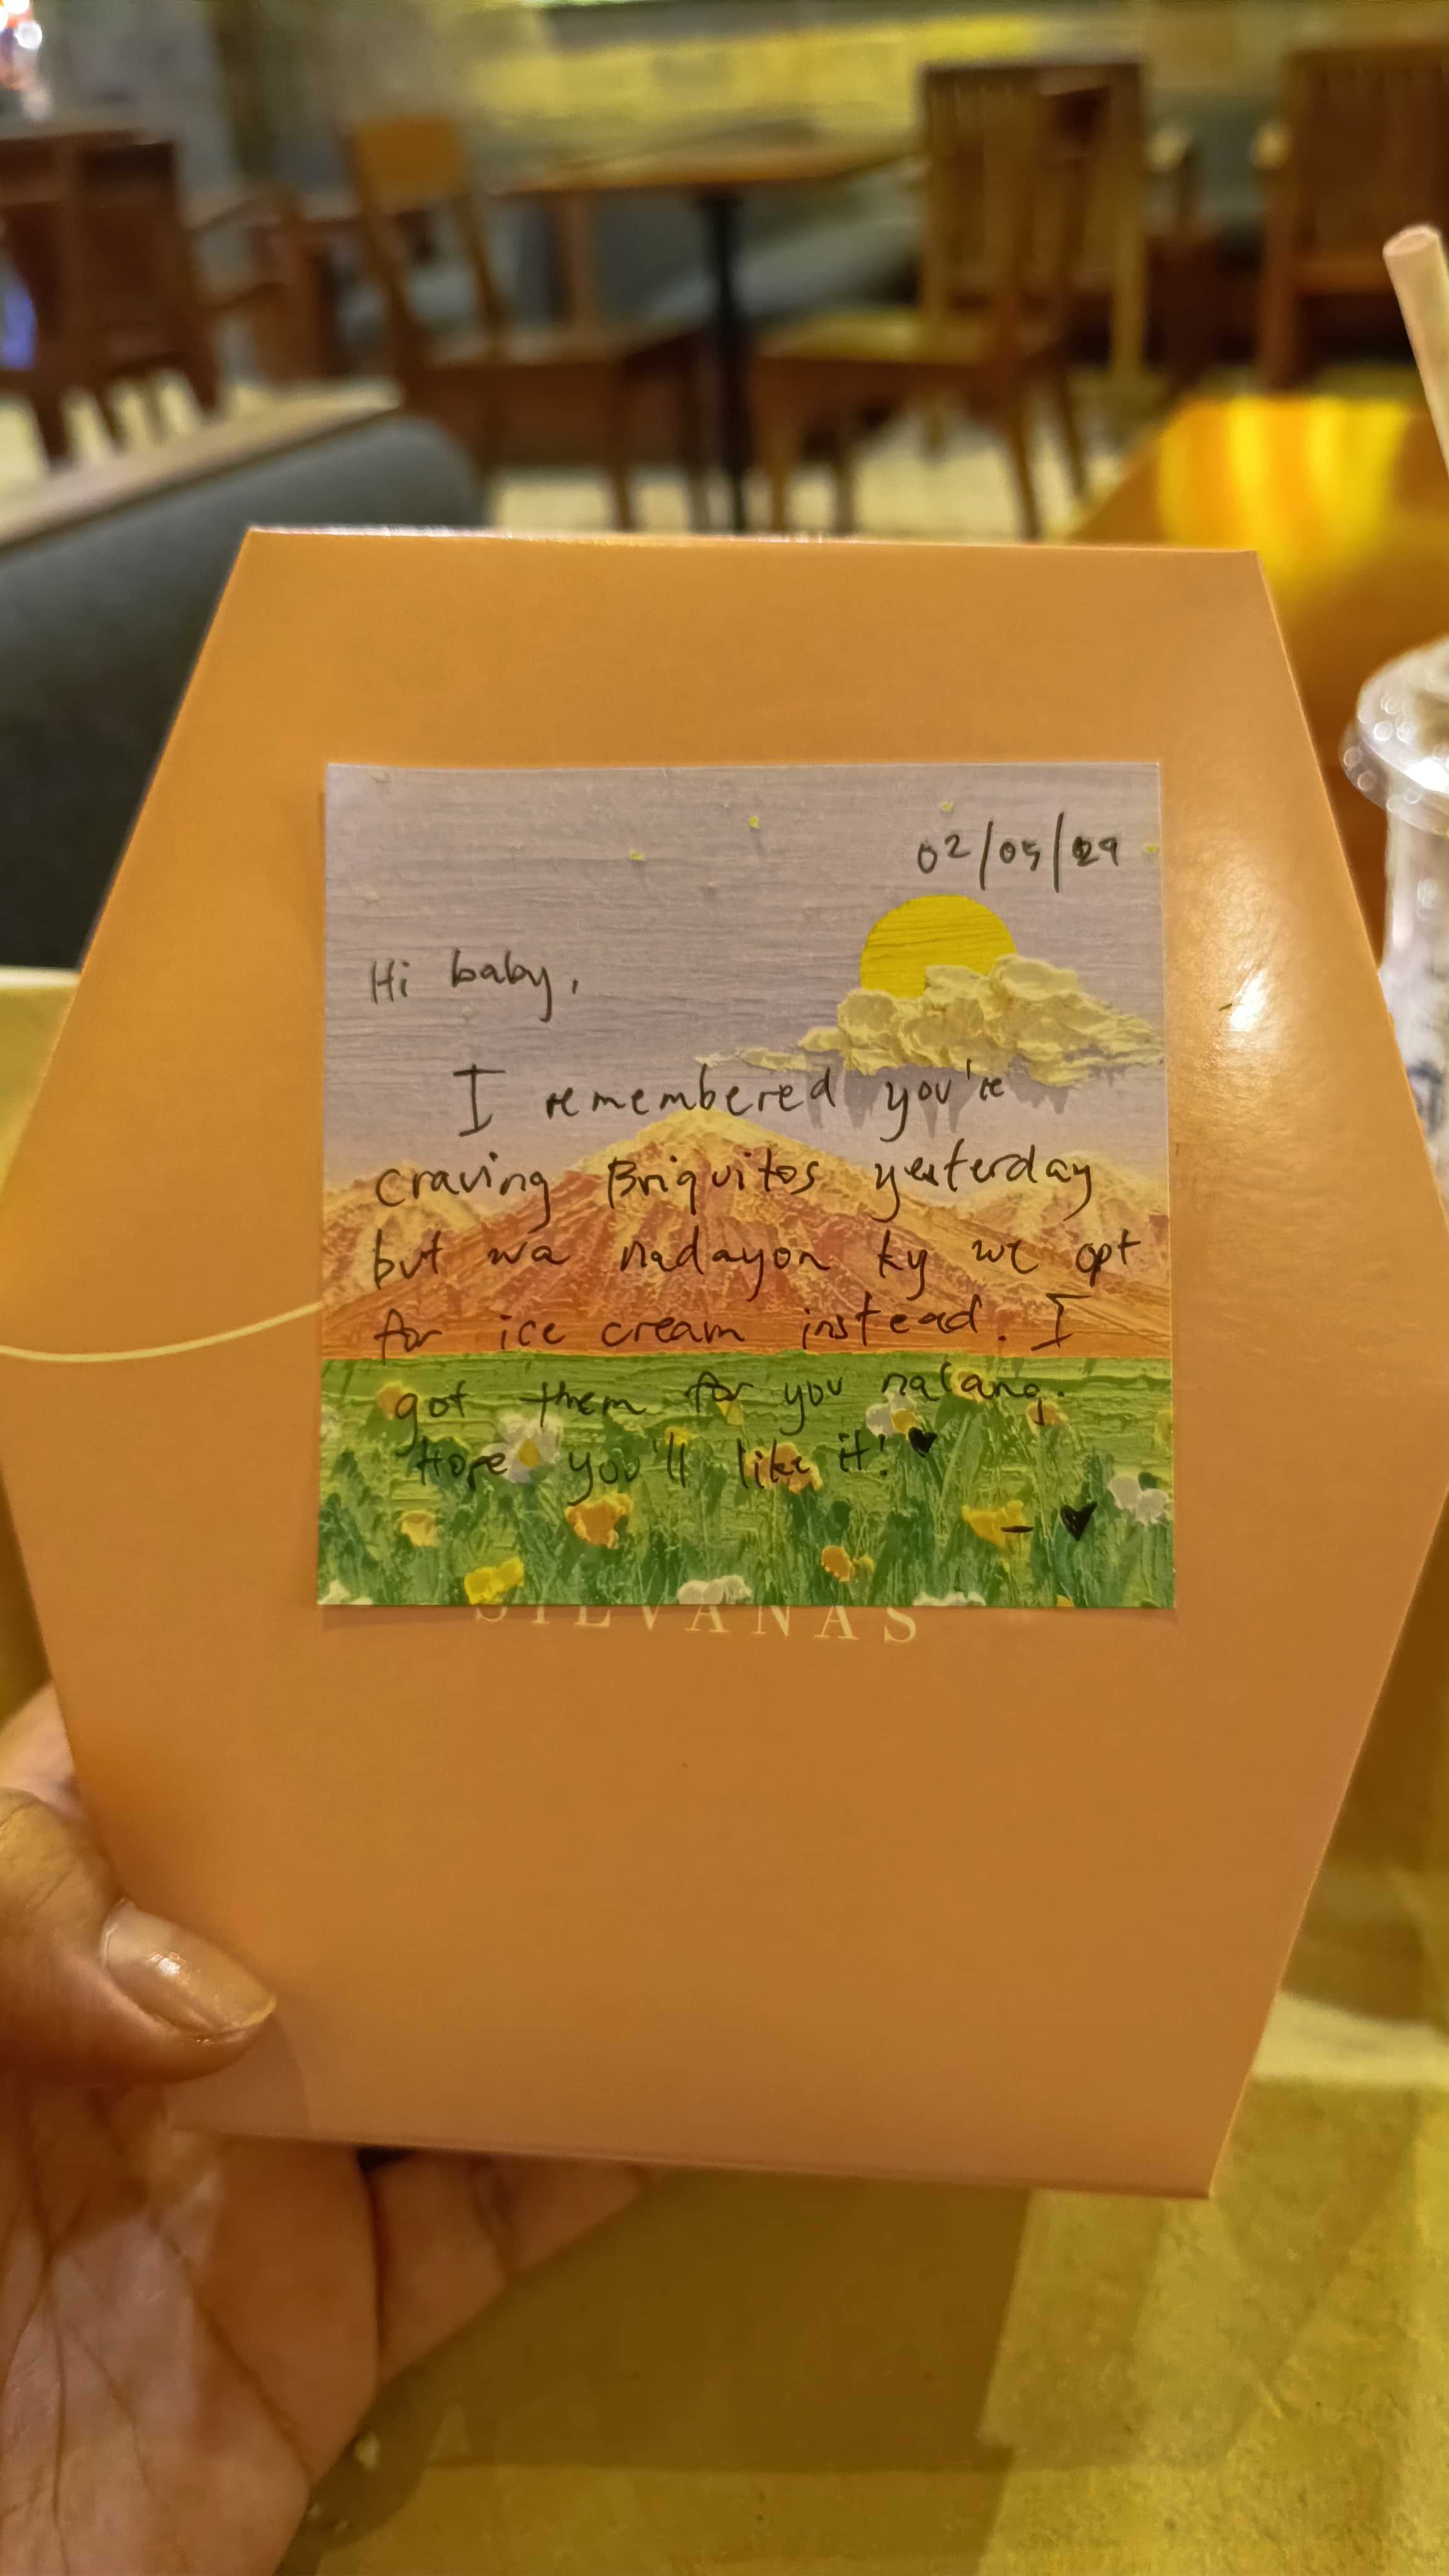 02/05/29
Hi baby,
I remembered you're
craving Briquitos yesterday
but wa nadayon ky we opt
for ice cream instead. I
got them for you nalang.
Hope you'll like it! ♥
- ♥
SILVANAS